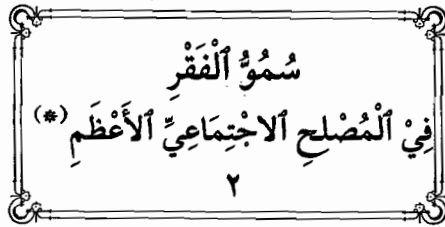 سُمُوُّ ٱلْفَقْرِ
فِيْ ٱلْمُصْلِحِ ٱلاجْتِمَاعِيِّ ٱلأَعْظَمِ (*)
٢